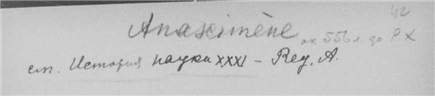 Anaximène ок 556 г до Р Х
42
ст. История науки XXXI – Rey, A.